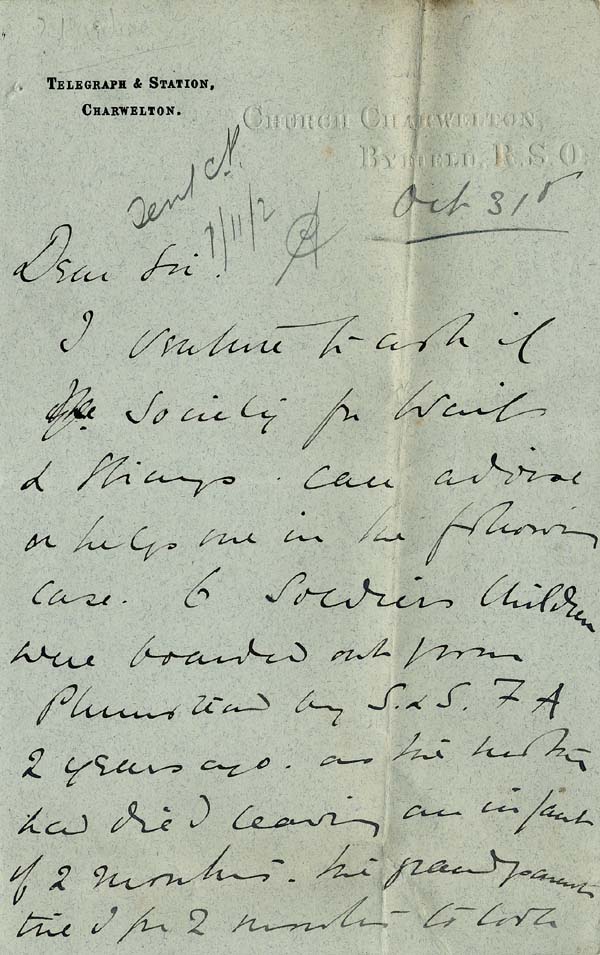 TELEGRAPH & STATION,
CHARWELTON.
CHURCH CHARWELTON,
BYFIELD, R.S.O.
Oct 31st
7/11/2
Dear Sir.
I venture to ask if
the Society for Waifs
& Strays. can advise
or help me in the following
case. 6 Soldiers Children
were boarded out from
Plumstead by S. & S. F A
2 years ago. as the mother
had died leaving an infant
of 2 months. the grandparents
tried for 2 months to look